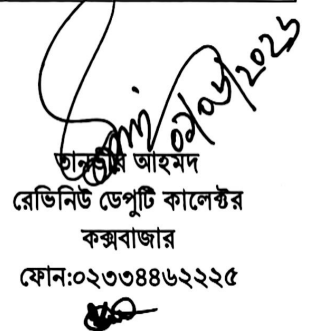 তানজীর আহমদ
রেভিনিউ ডেপুটি কালেক্টর
কক্সবাজার
ফোন:০২৩৩৪৪৬২২২৫